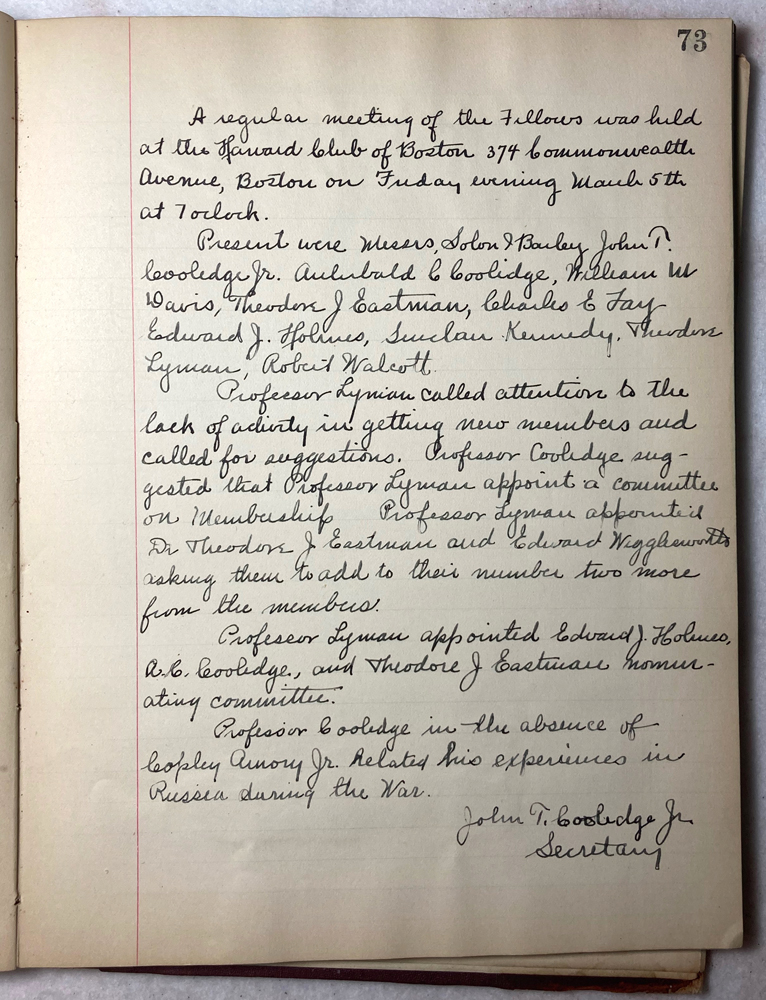 73
A regular meeting of the Fellows was held
at the Harvard Club of Boston 374 Commonwealth
Avenue, Boston on Friday evening March 5th
at 7 oclock.
Present were Messrs, Solon I Bailey John T.
Cooledge Jr. Archibald C Coolidge, William M
Davis, Theodore J Eastman, Charles E Fay
Edward J. Holmes, Sinclair Kennedy, Theodore
Lyman, Robert Walcott.
Professor Lyman called attention to the
lack of activity in getting new members and
called for suggestions. Professor Cooledge sug-
gested that Professor Lyman appoint a committee
on Membership Professor Lyman appointed
Dr Theodore J Eastman and Edward Wigglesworth
asking them to add to their number two more
from the members.
Professor Lyman appointed Edward J. Holmes,
A.C. Cooledge, and Theodore J Eastman nomin-
ating committee.
Professor Cooledge in the absence of
Copley Amory Jr. related his experiences in
Russia during the War.
John T. Cooledge Jr.
Secretary